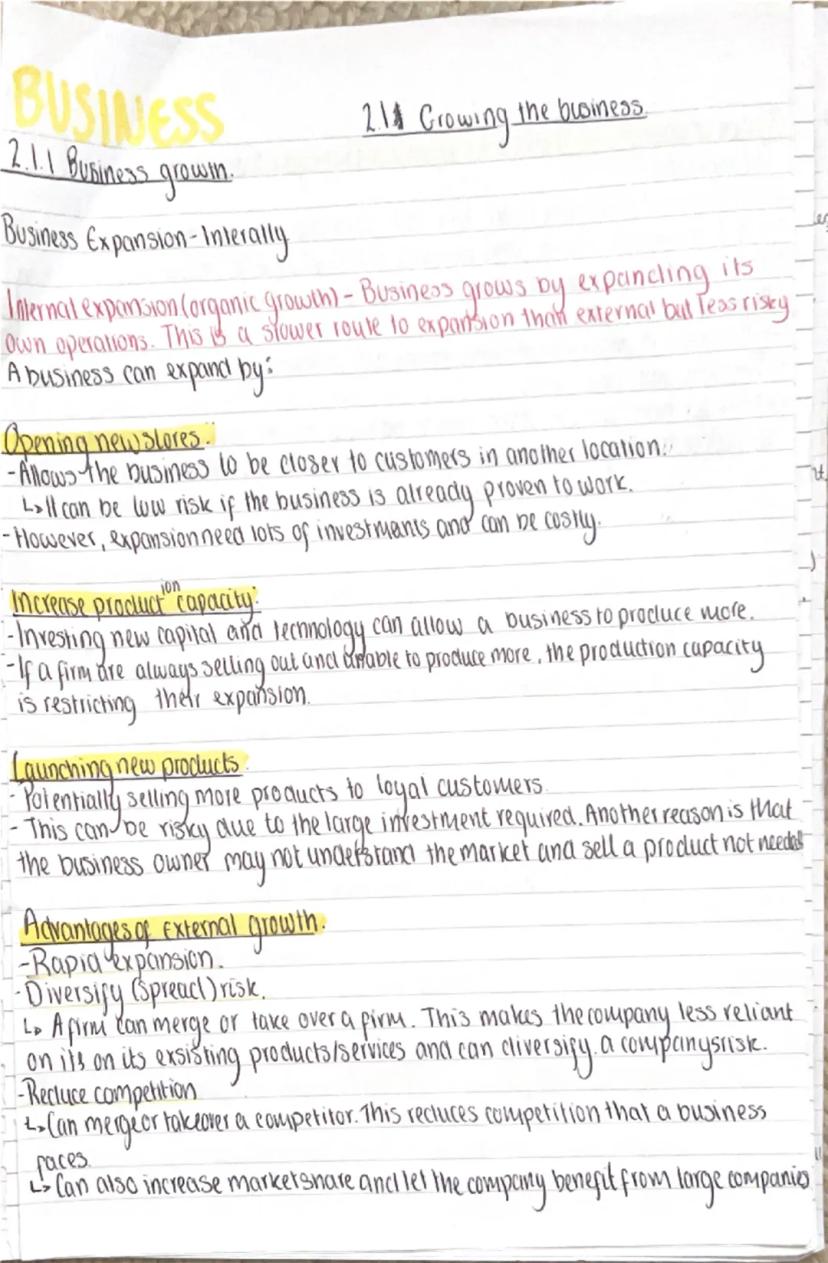 BUSINESS
2.1 Growing the business.
2.1.1 Business growth.
Business Expansion - Interally
Internal expansion (organic growth) - Business grows by expanding its
own operations. This is a slower route to expansion than external but less risky
A business can expand by:
Opening new stores:
- Allows the business to be closer to customers in another location.
↳ It can be low risk if the business is already proven to work.
- However, expansion need lots of investments and can be costly.
Increase production capacity:
- Investing new capital and technology can allow a business to produce more.
- If a firm are always selling out and unable to produce more, the production capacity
is restricting their expansion.
Launching new products
- Potentially selling more products to loyal customers.
- This can be risky due to the large investment required. Another reason is that
the business owner may not understand the market and sell a product not needed
Advantages of external growth.
- Rapid expansion.
- Diversify (spread) risk.
↳ A firm can merge or take over a firm. This makes the company less reliant
on its on its exsisting products/services and can diversify a companys risk.
- Reduce competition
↳ Can merge or takeover a competitor. This reduces competition that a business
faces.
↳ Can also increase market share and let the company benefit from large companies